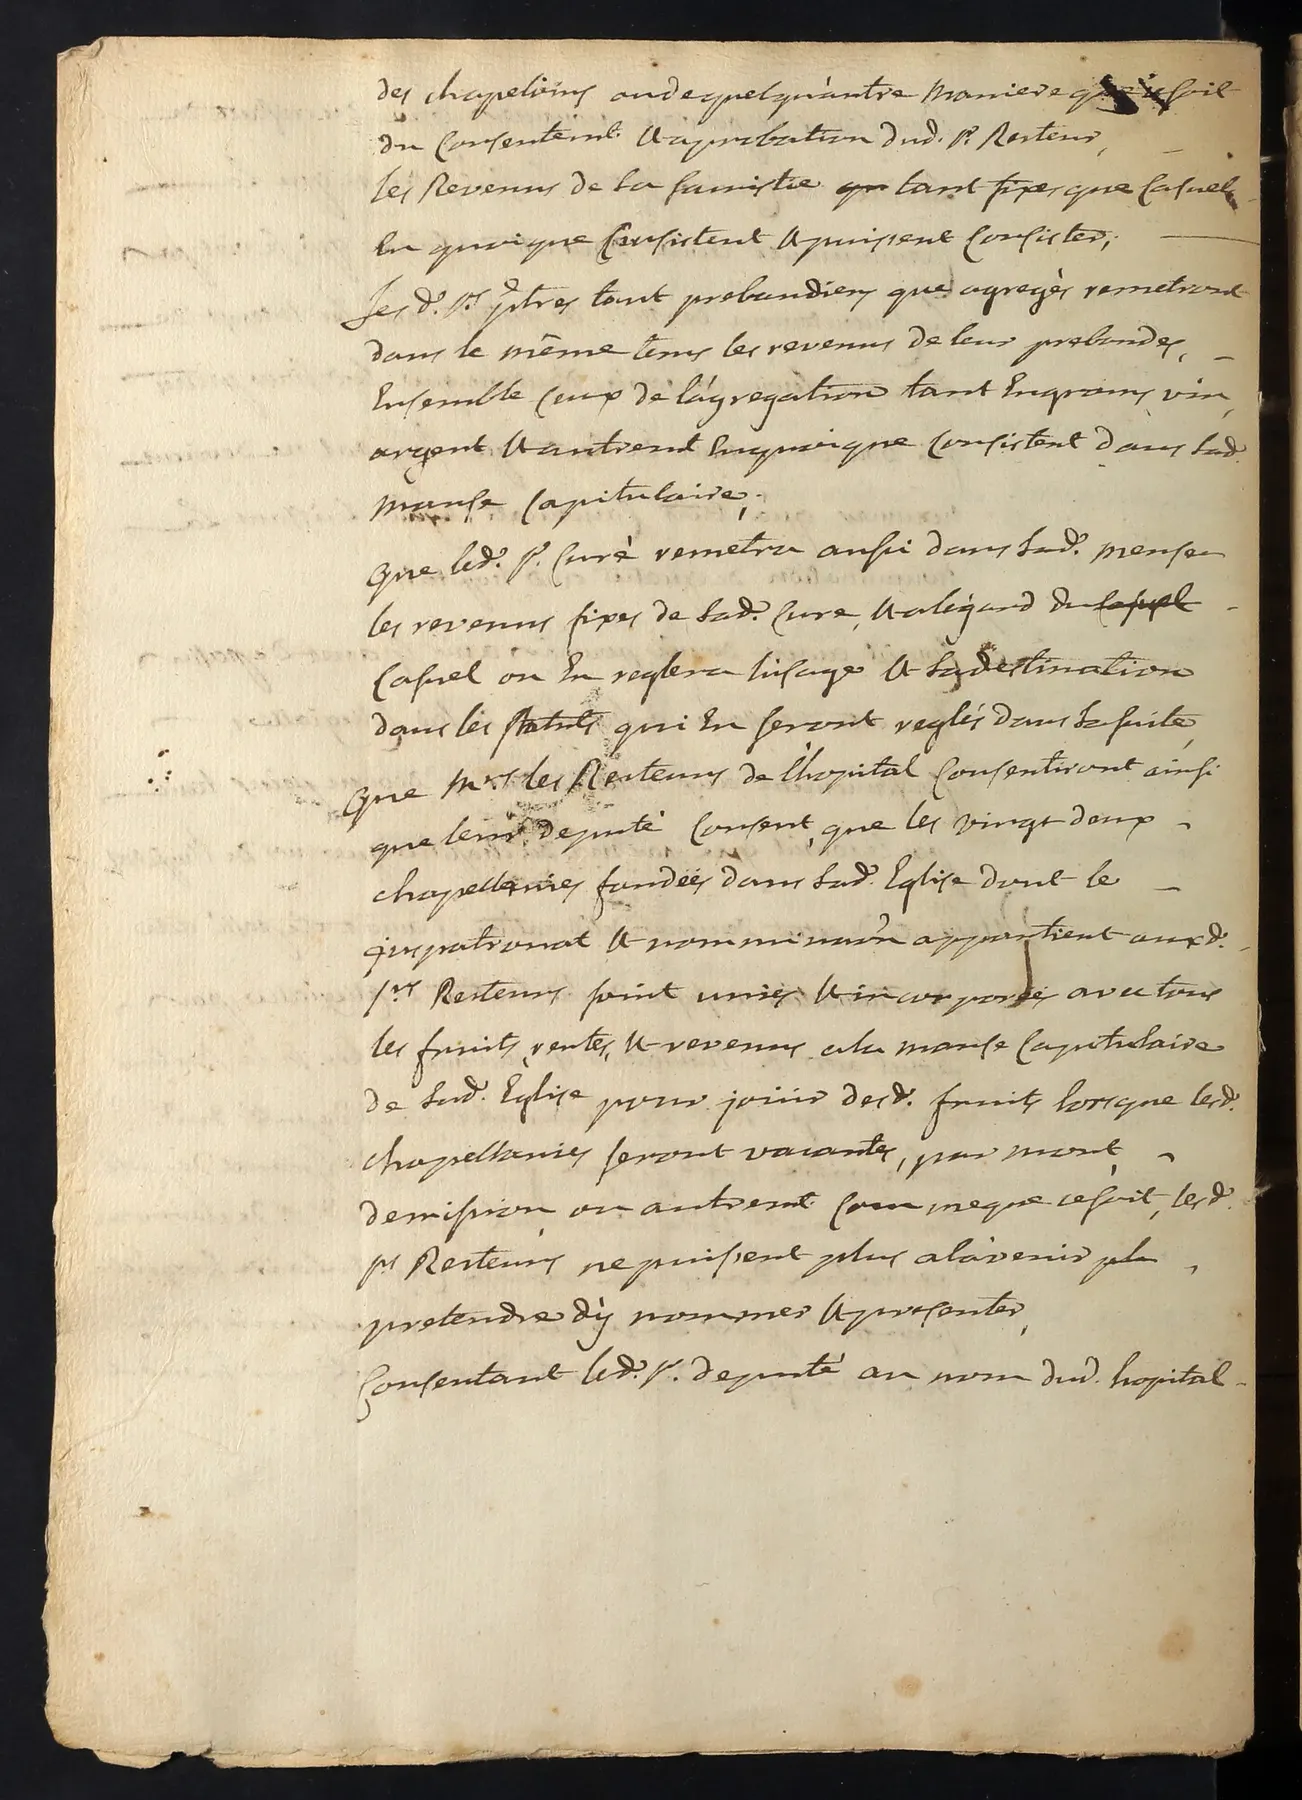 des chapelains ou de quelqu'autre maniere que ce soit
du consentemt. et aprobation dud. sr. Recteur,
les Revenus de la sacristie qu tant fixes que casuels
en quoique consistent et puissent consister;
Lesd. srs. prtres tant prebandiers que agregès remetront
dans le même tems les revenus de leur prebandes,
Ensemble ceux de l'agregation tant En grains, vin,
argent et autremt. En quoique consistent dans lad.
manse capitulaire;
que led. sr. curè remetra aussi dans lad. mense
les revenus fixes de lad. cure, et alegard du casuel
casuel on En reglera lusage et la destination
dans les statuts qui En seront reglés dans la suite,
que Mrs. les Recteurs de l'hopital consentiront ainsi
que leur deputé consent, que les vingt deux
chapellenies fondées dans lad. Eglise dont le
juspatronat et nomminaon appartient auxd.
srs. Recteurs soint unies et incorporées avec tous
les fruits, rentes, et revenus ala manse capitulaire
de lad. Eglise pour jouir desd. fruits lorsque lesd.
chapellenies seront vacantes, par mort,
demission, ou autremt. comme que ce soit, lesd.
srs. Recteurs ne puissent plus alavenir pla
pretendre d'y nommer et presenter,
Consentant led. sr. deputé au nom dud. hopital